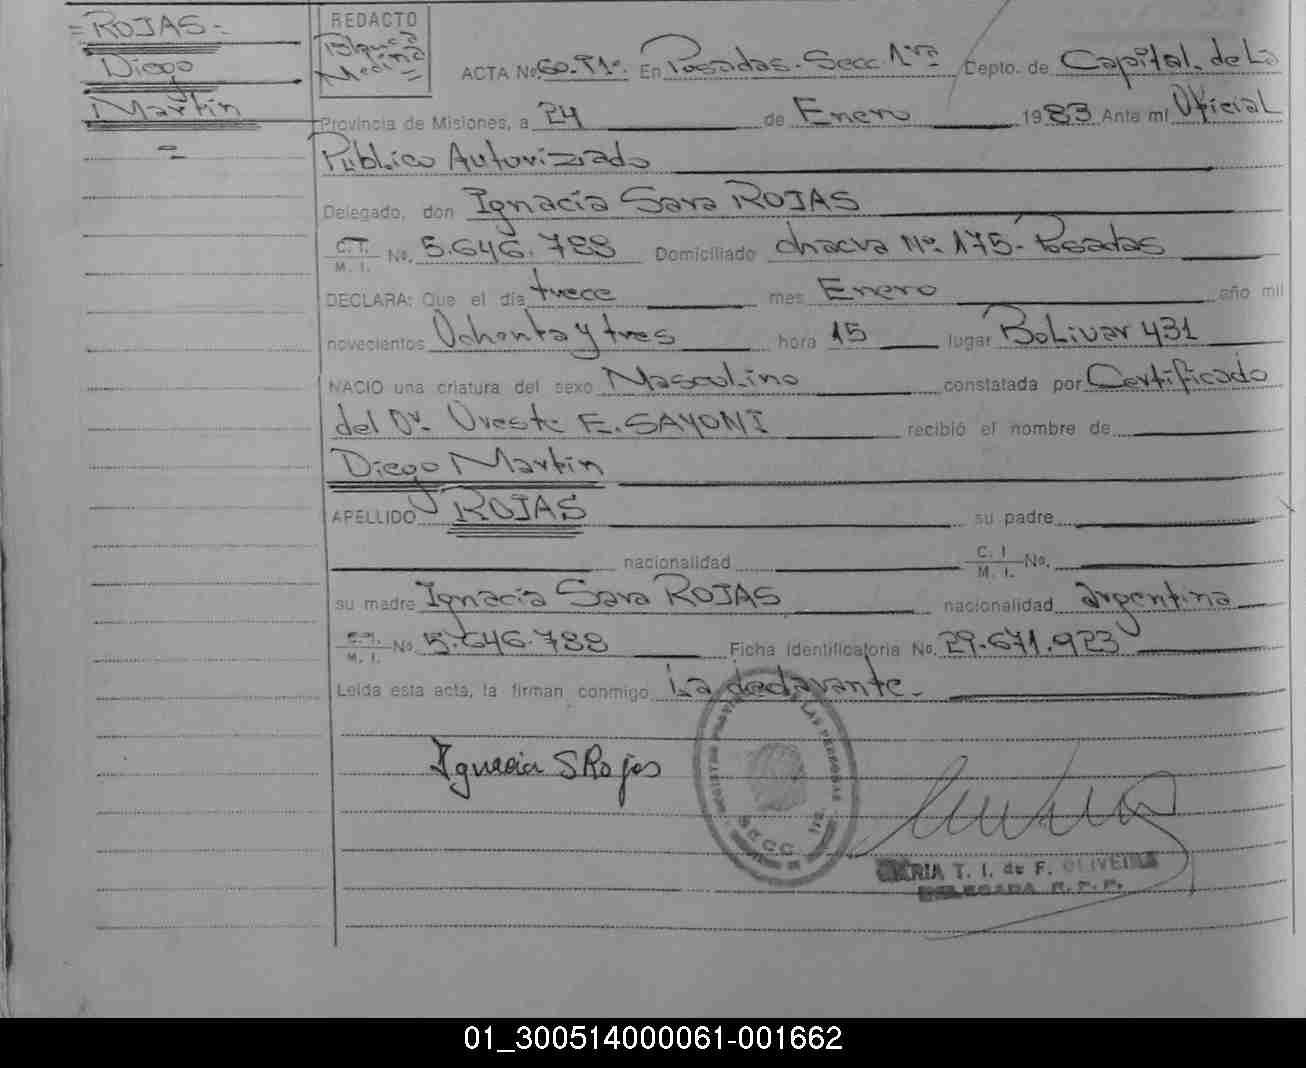 = ROJAS =
Diego
Martin
=
REDACTO
Blanca
Medina =
ACTA No 60. T1º. En Posadas. Secc. 1ra Depto. de Capital. de La
Provincia de Misiones, a 24 de Enero 1983 Ante mi Oficial
Público Autorizado
Delegado, don Ignacia Sara ROJAS
C.I.
M. I. No. 5.646.788 Domiciliado chacra Nº 175- Posadas
DECLARA: Que el día trece mes Enero año mil
novecientos Ochenta y tres hora 15 lugar Bolivar 431
NACIO una criatura del sexo Masculino constatada por Certificado
del Dr. Oreste E. SAYONI recibió el nombre de
Diego Martin
APELLIDO ROJAS su padre
nacionalidad C. I. M. I. No.
su madre Ignacia Sara ROJAS nacionalidad argentina
C.I.
M. I. No 5.646.788 Ficha Identificatoria No. 29.671.923
Leída esta acta, la firman conmigo La declarante.
Ignacia S Rojas
LAS PERSONAS
SECC. 1ra.
MARIA T. I. de F. OLIVEIRA
DELEGADA R. P. P.
01_300514000061-001662